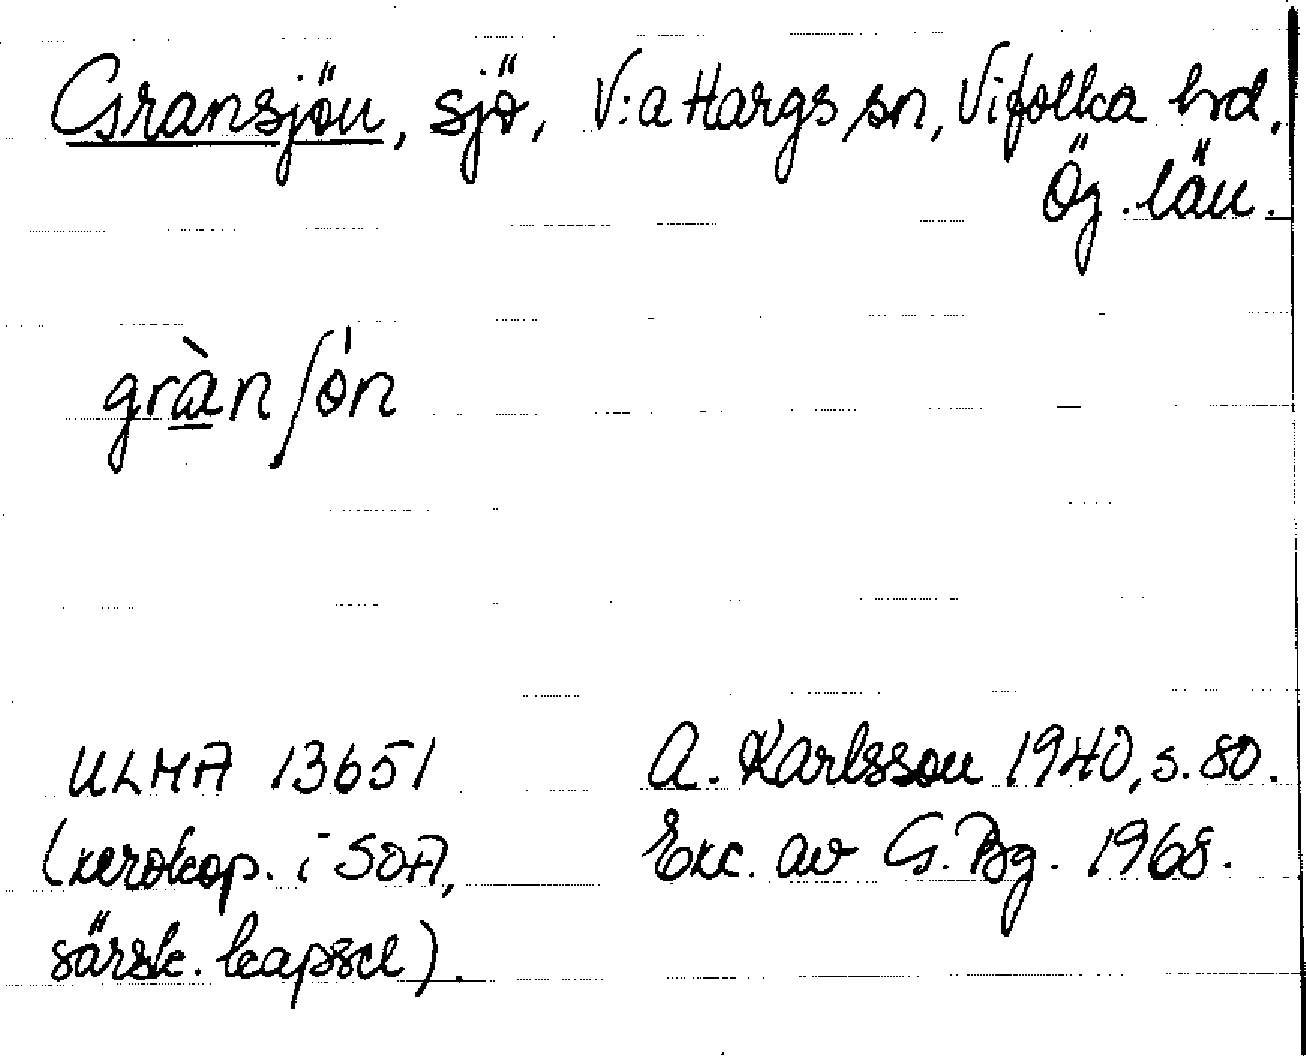 Gransjön, sjö, V:a Hargs sn, Vifolka hd,
Ög. län.
grànʃón
ULMA 13651
(xerokop. i SOA,
särsk. kapsel).
A. Karlsson 1940, s. 80.
Exc. av G. Bg. 1968.